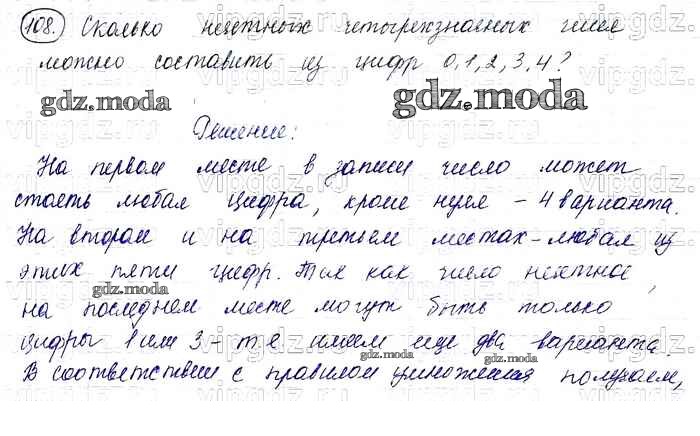 108. Сколько нечетных четырехзначных чисел
можно составить из цифр 0,1,2,3,4?
gdz.moda
gdz.moda
Решение:
На первом месте в записи число может
стоять любая цифра, кроме нуля - 4 варианта.
На втором и на третьем местах - любая из
этих пяти цифр. Так как число нечетное,
gdz.moda
на последнем месте могут быть только
цифры 1 или 3 - т.е. имеем еще два варианта.
gdz.moda
gdz.moda
В соответствии с правилом умножения получаем,